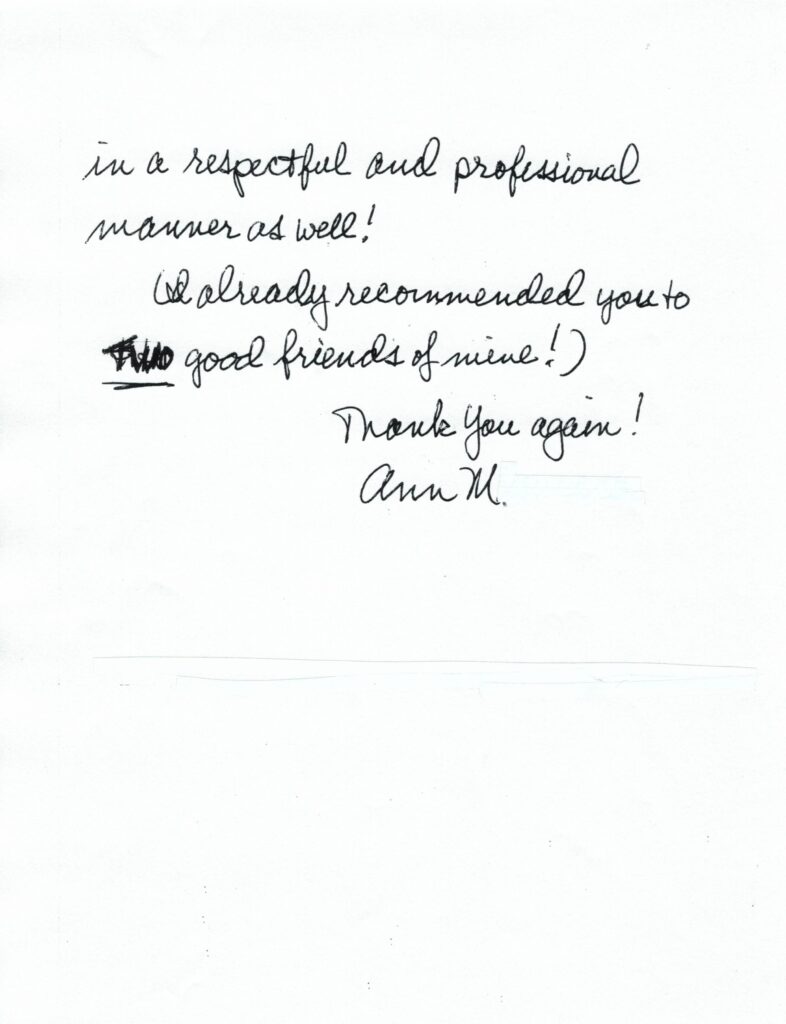 in a respectful and professional
manner as well!
(I already recommended you to
Two good friends of mine!)
Thank You again!
Ann M.